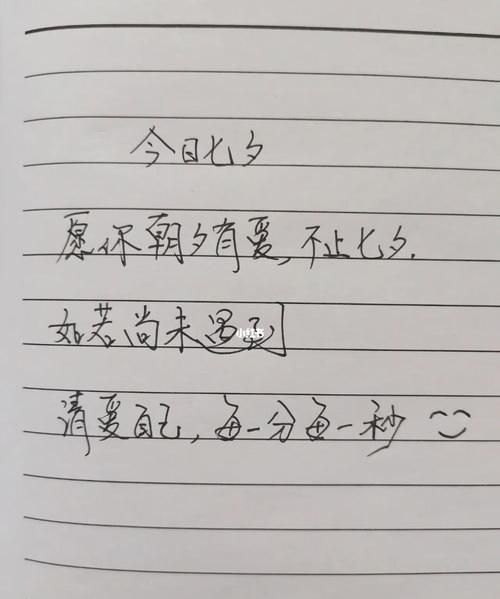 今日七夕
愿你朝夕有爱,不止七夕.
如若尚未遇到
小红书
请爱自己,每一分每一秒